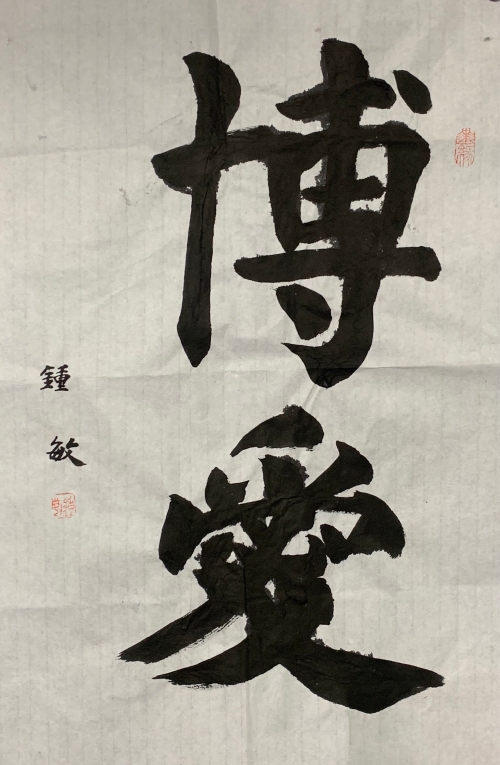 博愛
鍾敏